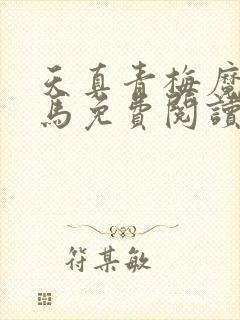 天真青梅魔
馬免費閱讀
符某敏